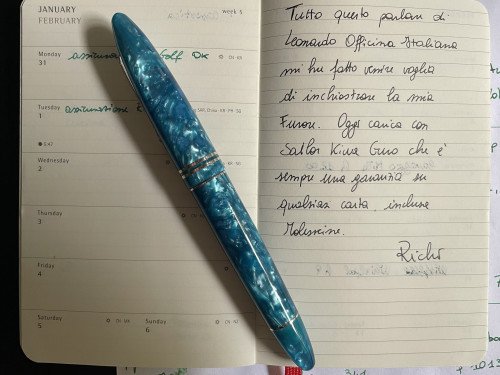 JANUARY
FEBRUARY
week 5
Monday
31
assicurazione Golf OK
Tuesday
1
assicurazione
Wednesday
2
Thursday
3
Friday
4
Saturday
5
Sunday
6
Tutto questo parlare di
Leonardo Officina Italiana
mi ha fatto venire voglia
di inchiostrare la mia
Furore. Oggi carica con
Sailor Kiwa Guro che è
sempre una garanzia su
qualsiasi carta, incluse
Moleskine.